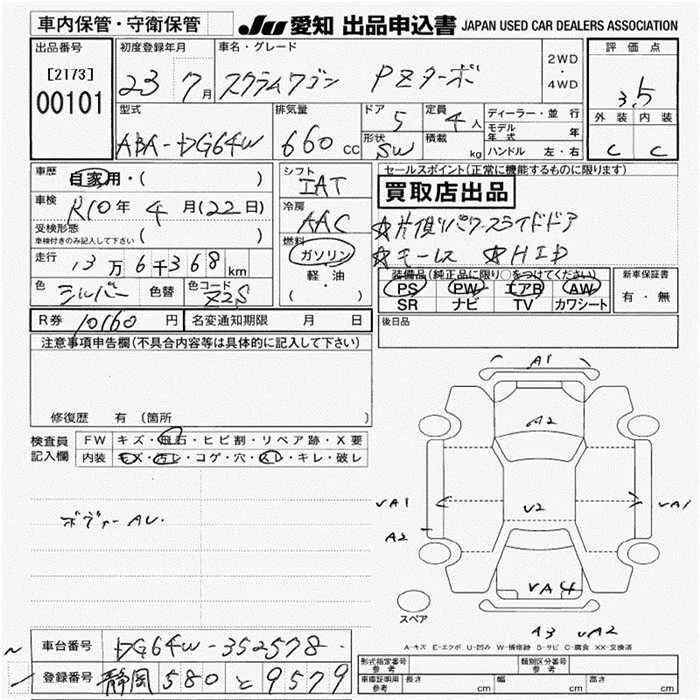 車内保管・守衛保管
JU 愛知 出品申込書 JAPAN USED CAR DEALERS ASSOCIATION
出品番号
[2173]
00101
初度登録年月
23 7月
車名・グレード
スクラムワゴン PZターボ
2WD
・
4WD
評価点
3.5
外装 内装
C C
型式
ABA-DG64W
排気量
660 cc
ドア 5
形状 SW
定員 4人
積載 kg
ディーラー・並行
モデル年式 年
ハンドル 左・右
車歴 自家用・( )
車検 R10年 4月(22日)
受検形態
車検付きのみ記入して下さい ( )
走行 13万6千368km
色 シルバー 色替 色コード Z2S
シフト
IAT
冷房
AAC
燃料
ガソリン
軽・油
( )
セールスポイント(正常に機能するものに限ります)
買取店出品
☆片側パワースライドドア
☆キーレス ☆HID
装備品(純正品に限り○をつけてください)
PS PW エアB AW
SR ナビ TV カワシート
新車保証書
有・無
R券 10160円 名変通知期限 月 日
後日品
注意事項申告欄(不具合内容等は具体的に記入して下さい)
修復歴 有(箇所 )
検査員
記入欄
FW キズ・飛石・ヒビ割・リペア跡・X要
内装 キズ・汚レ・コゲ・穴・スレ・キレ・破レ
AU.
A1
A2
VA1
A2
V2
VA1
VA4
スペア
A3 VA2
A-キズ E-エクボ U-凹み W-補修跡 S-サビ C-腐食 XX-交換済
車台番号 DG64W-352578
登録番号 静岡 580 と 9579
形式指定番号
参考
類別区分番号
参考
車庫証明用
参考
長さ cm 幅 cm 高さ cm